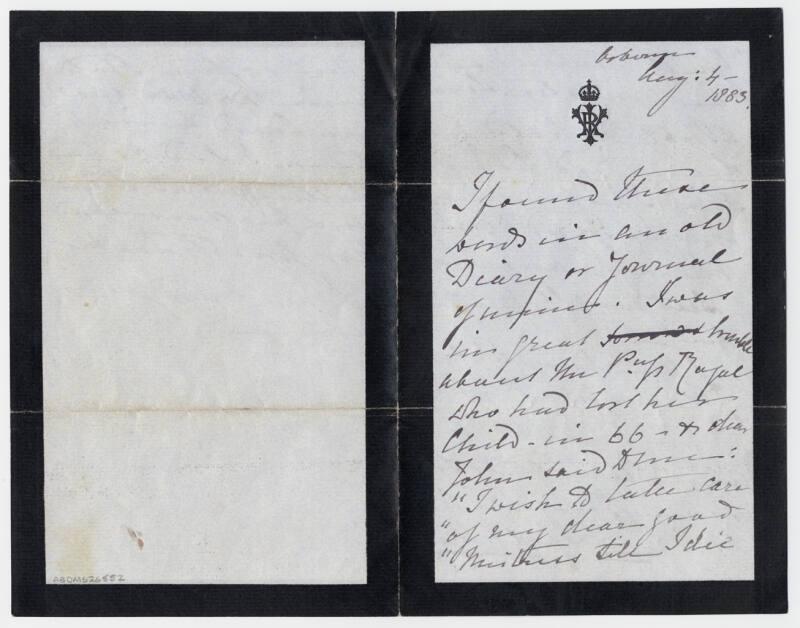 Osborne
Aug: 4 -
1883.
VRI
I found these
words in an old
Diary or Journal
of mine. I was
in great trouble
about the Pss Royal
who had lost her
Child - in 66 - & dear
John said to me:
"I wish to take care
"of my dear good
"Mistress till I die
ABDMS26552